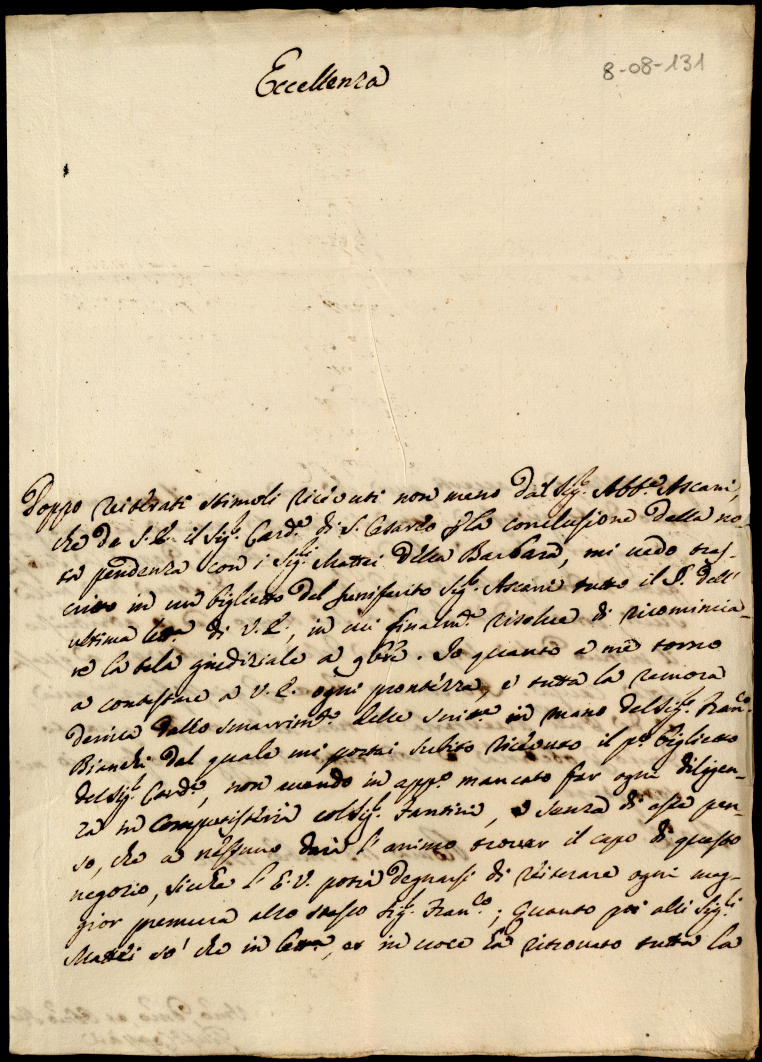 Eccellenza
8-08-131
Doppo reiterati stimoli riceuuti non meno dal Sig.r Abb.e Ascani,
che da S. E. il Sig.r Card.e di S. Cesareo p la conclusione della no-
ta pendenza con i Sig.ri Mattei della Barbara, mi uedo tras-
critto in un biglietto del sunriferito Sig.r Ascani tutto il P. dell'
ultima lett.a di V. E., in cui finalm.te risolue di ricomincia-
re la tela giudiziale a 9bre. Io quanto a me torno
a contestare a V. E. ogni prontezza, e tutta la remora
deriua dallo smarrim.to delle scritt.e in mano del Sig.r Fran.co
Bianchi dal quale mi portai subito riceuuto il p.o biglietto
del Sig.r Card.e, non auendo in app.o mancato far ogni diligen-
za in computisteria col Sig.r Fantini, e senza di esse pen-
so, che a nessuno darà l'animo trouar il capo di questo
negozio, sicche l'E. V. potrà degnarsi di reiterare ogni mag-
gior premura allo stesso Sig.r Fran.co; Quanto poi alli Sig.ri
Mattei sò che in lett.a, et in uoce hò ritrouato tutta la